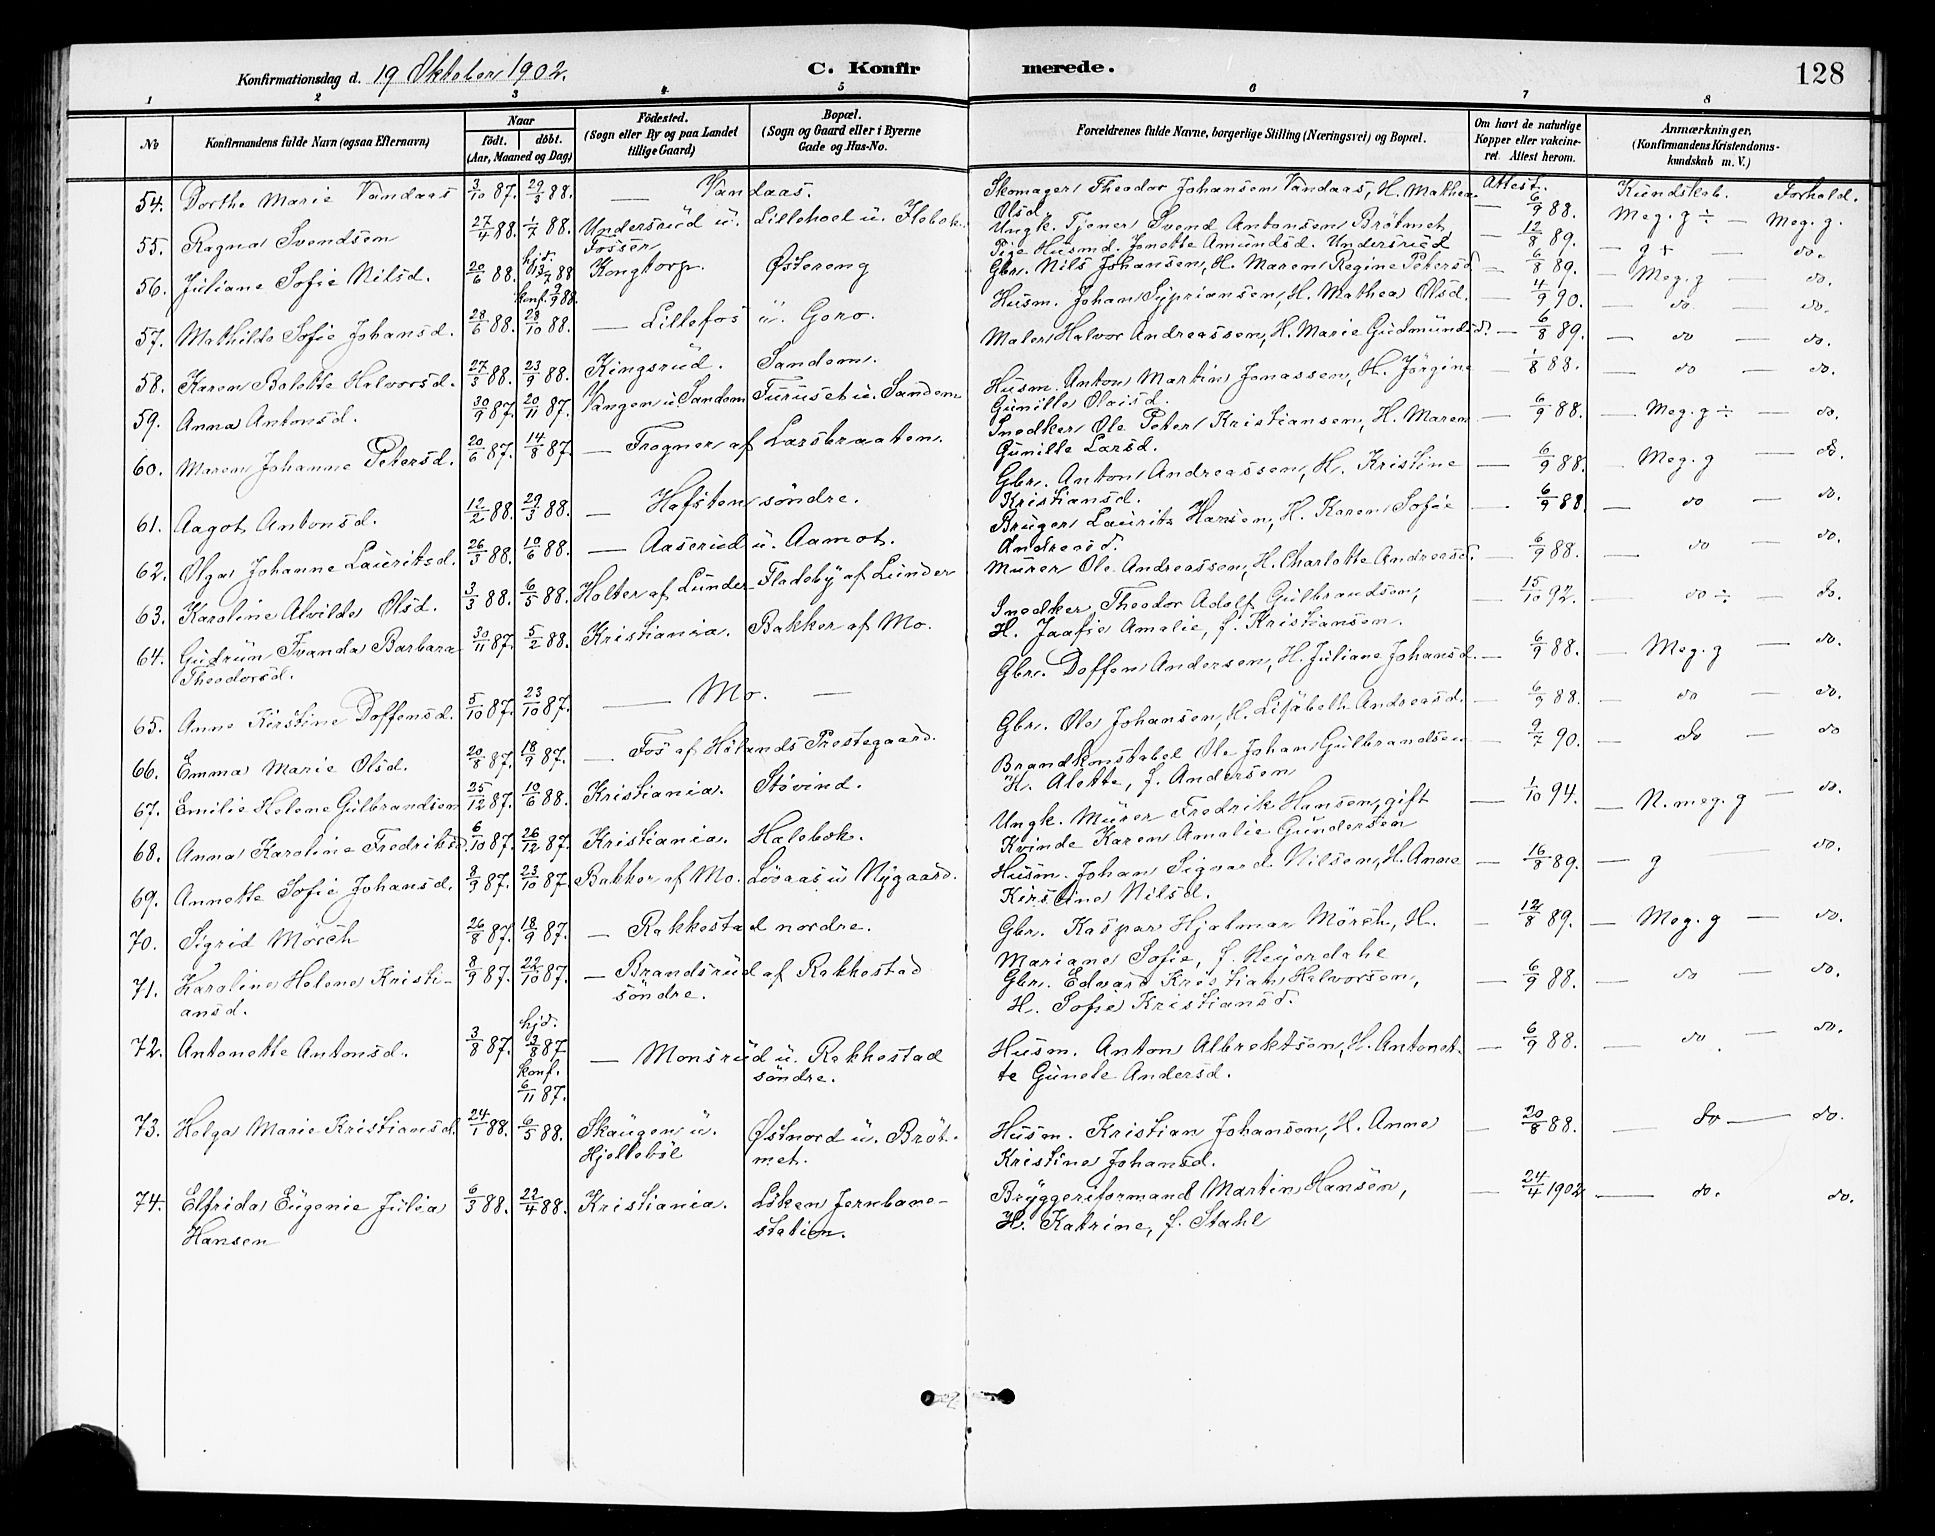 Konfirmationsdag d. 19 Oktober 1902.
C. Konfirmerede.
128
1 2 3 4 5 6 7 8
No
Konfirmandens fulde Navn (ogsaa Efternavn)
Naar
födt. döbt.
(Aar, Maaned og Dag)
Födested.
(Sogn eller By og paa Landet
tillige Gaard)
Bopæl.
(Sogn og Gaard eller i Byerne
Gade og Hus-No.
Forældrenes fulde Navne, borgerlige Stilling (Næringsvei) og Bopæl.
Om havt de naturlige
Kopper eller vakcine-
ret. Attest herom.
Anmærkninger,
(Konfirmandens Kristendoms-
kundskab m. V.)
Attest. Kundskab. Forhold.
54. Dorthe Marie Vandaas 3/10 87. 29/3 88. — Vandaas. Skomager Theodor Johansen Vandaas, H. Mathea
Olsd. — 6/9 88. Meg. g ÷ — Meg. g.
55. Ragna Svendsen 27/4 88. 1/7 88. Undersrud u. Fosser Lillehoel u. Hebek. Ungk. Tjener Svend Antonsen Brötmet,
Pige Husmd. Jonette Amundsd. Undersrud — 12/8 89. — g + — do.
56. Juliane Sofie Nilsd. 20/6 88. hjd. 13/7 88 konf. 2/9 88. Kongtorp. Østereng Gbr. Nils Johansen, H. Maren Regine Petersd. — 6/8 89. — Meg. g — do.
57. Mathilde Sofie Johansd. 28/6 88. 28/10 88. — Lillefos u. Goro. Husm. Johan Syprianesen, H. Mathea Olsd. — 4/9 90. — do — do.
58. Karen Bolette Halvorsd. 27/5 88. 23/9 88. Kingsrud. Sandem. Maler Halvor Andreassen, H. Marie Gudmundsd. — 6/8 89. — do — do.
59. Anna Antonsd. 30/9 87. 20/11 87. Vangen u. Sandem Furuset u. Sandem Husm. Anton Martin Jonassen, H. Jörgine
Gunille Olaisd. — 1/8 88. — do — do.
60. Maren Johanne Petersd. 20/6 87. 14/8 87. — Frogner af Larsbraaten. Snedker Ole Peter Kristiansen, H. Maren
Gunille Larsd. — 6/9 88. — Meg. g ÷ — do.
61. Aagot Antonsd. 12/2 88. 29/3 88. — Hafsten söndre. Gbr. Anton Andreassen, H. Kristine
Kristiansd. — 6/9 88. — Meg. g — do.
62. Olga Johanne Lauritsd. 26/3 88. 10/6 88. — Aaserud u. Aamot. Bruger Lauritz Hansen, H. Karen Sofie
Andreasd. — 6/9 88 — do — do.
63. Karoline Alvilde Olsd. 3/3 88. 6/5 88. Holter af Lunder Fladeby af Lunder Murer Ole Andreassen, H. Charlotte Andreasd. — 6/9 88. — do — do.
64. Gudrun Ivanda Barbara
Theodorsd. 30/11 87. 5/2 88. Kristiania. Bakker af Mo. Snedker Theodor Adolf Gulbrandsen,
H. Amalie, f. Kristiansen. — 15/10 92. — do ÷ — do.
65. Anne Kirstine Doffensd. 5/10 87. 23/10 87. — Mo. — Gbr. Doffen Andersen, H. Juliane Johansd. — 6/9 88. — Meg. g — do.
66. Emma Marie Olsd. 20/8 87. 18/9 87. — Fos af Hölands Prestegaard. Gbr. Ole Johansen, H. Lisabeth Andreasd. — 6/9 88. — do — do.
67. Emilie Helene Gulbrandsen 25/12 87. 10/6 88. Kristiania. Stövind. Brandkonstabel Ole Johan Gulbrandsen
H. Alette, f. Andersen — 9/7 90. — do — do
68. Anna Karoline Fredriksd. 6/10 87. 26/12 87. Kristiania. Halebek. Ungk. Murer Fredrik Hansen, gift
Kvinde Karen Amalie Gundersen — 1/10 94. — N. meg. g — do.
69. Annette Sofie Johansd. 8/9 87. 23/10 87. Bakker af Mo. Lövaas u Nygaard. Husm. Johan Sigvard Nilsen, H. Anne
Kirstine Nilsd. — 16/8 89. — g — do.
70. Sigrid Mörch 26/8 87. 18/9 87. — Rakkestad nordre. Gbr. Kaspar Hjalmar Mörch, H.
Mariane Sofie, f. Heyerdahl — 12/8 89. — Meg. g — do.
71. Karoline Helene Kristi-
ansd. 8/9 87. 22/10 87. — Brandsrud af Rakkestad
söndre. Gbr. Edvard Kristian Halvorsen,
H. Sofie Kristiansd. — 6/9 88. — do — do.
72. Antonette Antonsd. 3/8 87. hjd. 3/8 87 konf. 6/11 87. — Monsrud u. Rakkestad
söndre. Husm. Anton Albrektsen, H. Antonet-
te Gunele Andersd. — 6/9 88. — do. — do.
73. Helga Marie Kristiansd. 24/1 88. 6/5 88. Skaugen u.
Hjelleböl Østnord u. Bröt-
met. Husm. Kristian Johansen, H. Anne
Kristine Johansd. — 20/8 88. — do — do.
74. Elfrida Eugenie Julia
Hansen 6/3 88. 22/4 88. Kristiania. Löken Jernbane-
station. Bryggeriformand Martin Hansen,
H. Katrine, f. Stahl — 24/4 1902 — do. do.